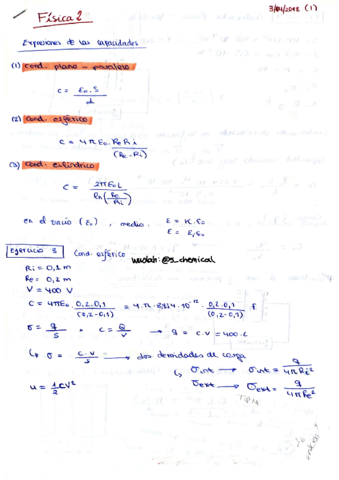 3/04/2018 (1)
Física 2
Expresiones de las capacidades
(1) cond. plano - paralelo
C = ε₀·S / d
(2) cond. esférico
C = 4πε₀ Re Ri / (Re - Ri)
(3) cond. cilíndrico
C = 2πε₀L / ln(Re/Ri)
en el vacío (ε₀), medio: ε = K·ε₀
ε = εr ε₀
Ejercicio 3 Cond. esférico
wuolah: @s_chemical
Ri = 0,1 m
Re = 0,2 m
V = 400 V
C = 4πε₀ · 0,2·0,1 / (0,2-0,1) = 4·π·8,14·10⁻¹² · 0,2·0,1 / (0,2-0,1) F
σ = q/S · C = Q/V → q = C·V = 400·C
↳ σ = C·V / S → dos densidades de carga
↳ σint → σint = q / 4πRi²
σext → σext = q / 4πRe²
u = 1/2 CV²